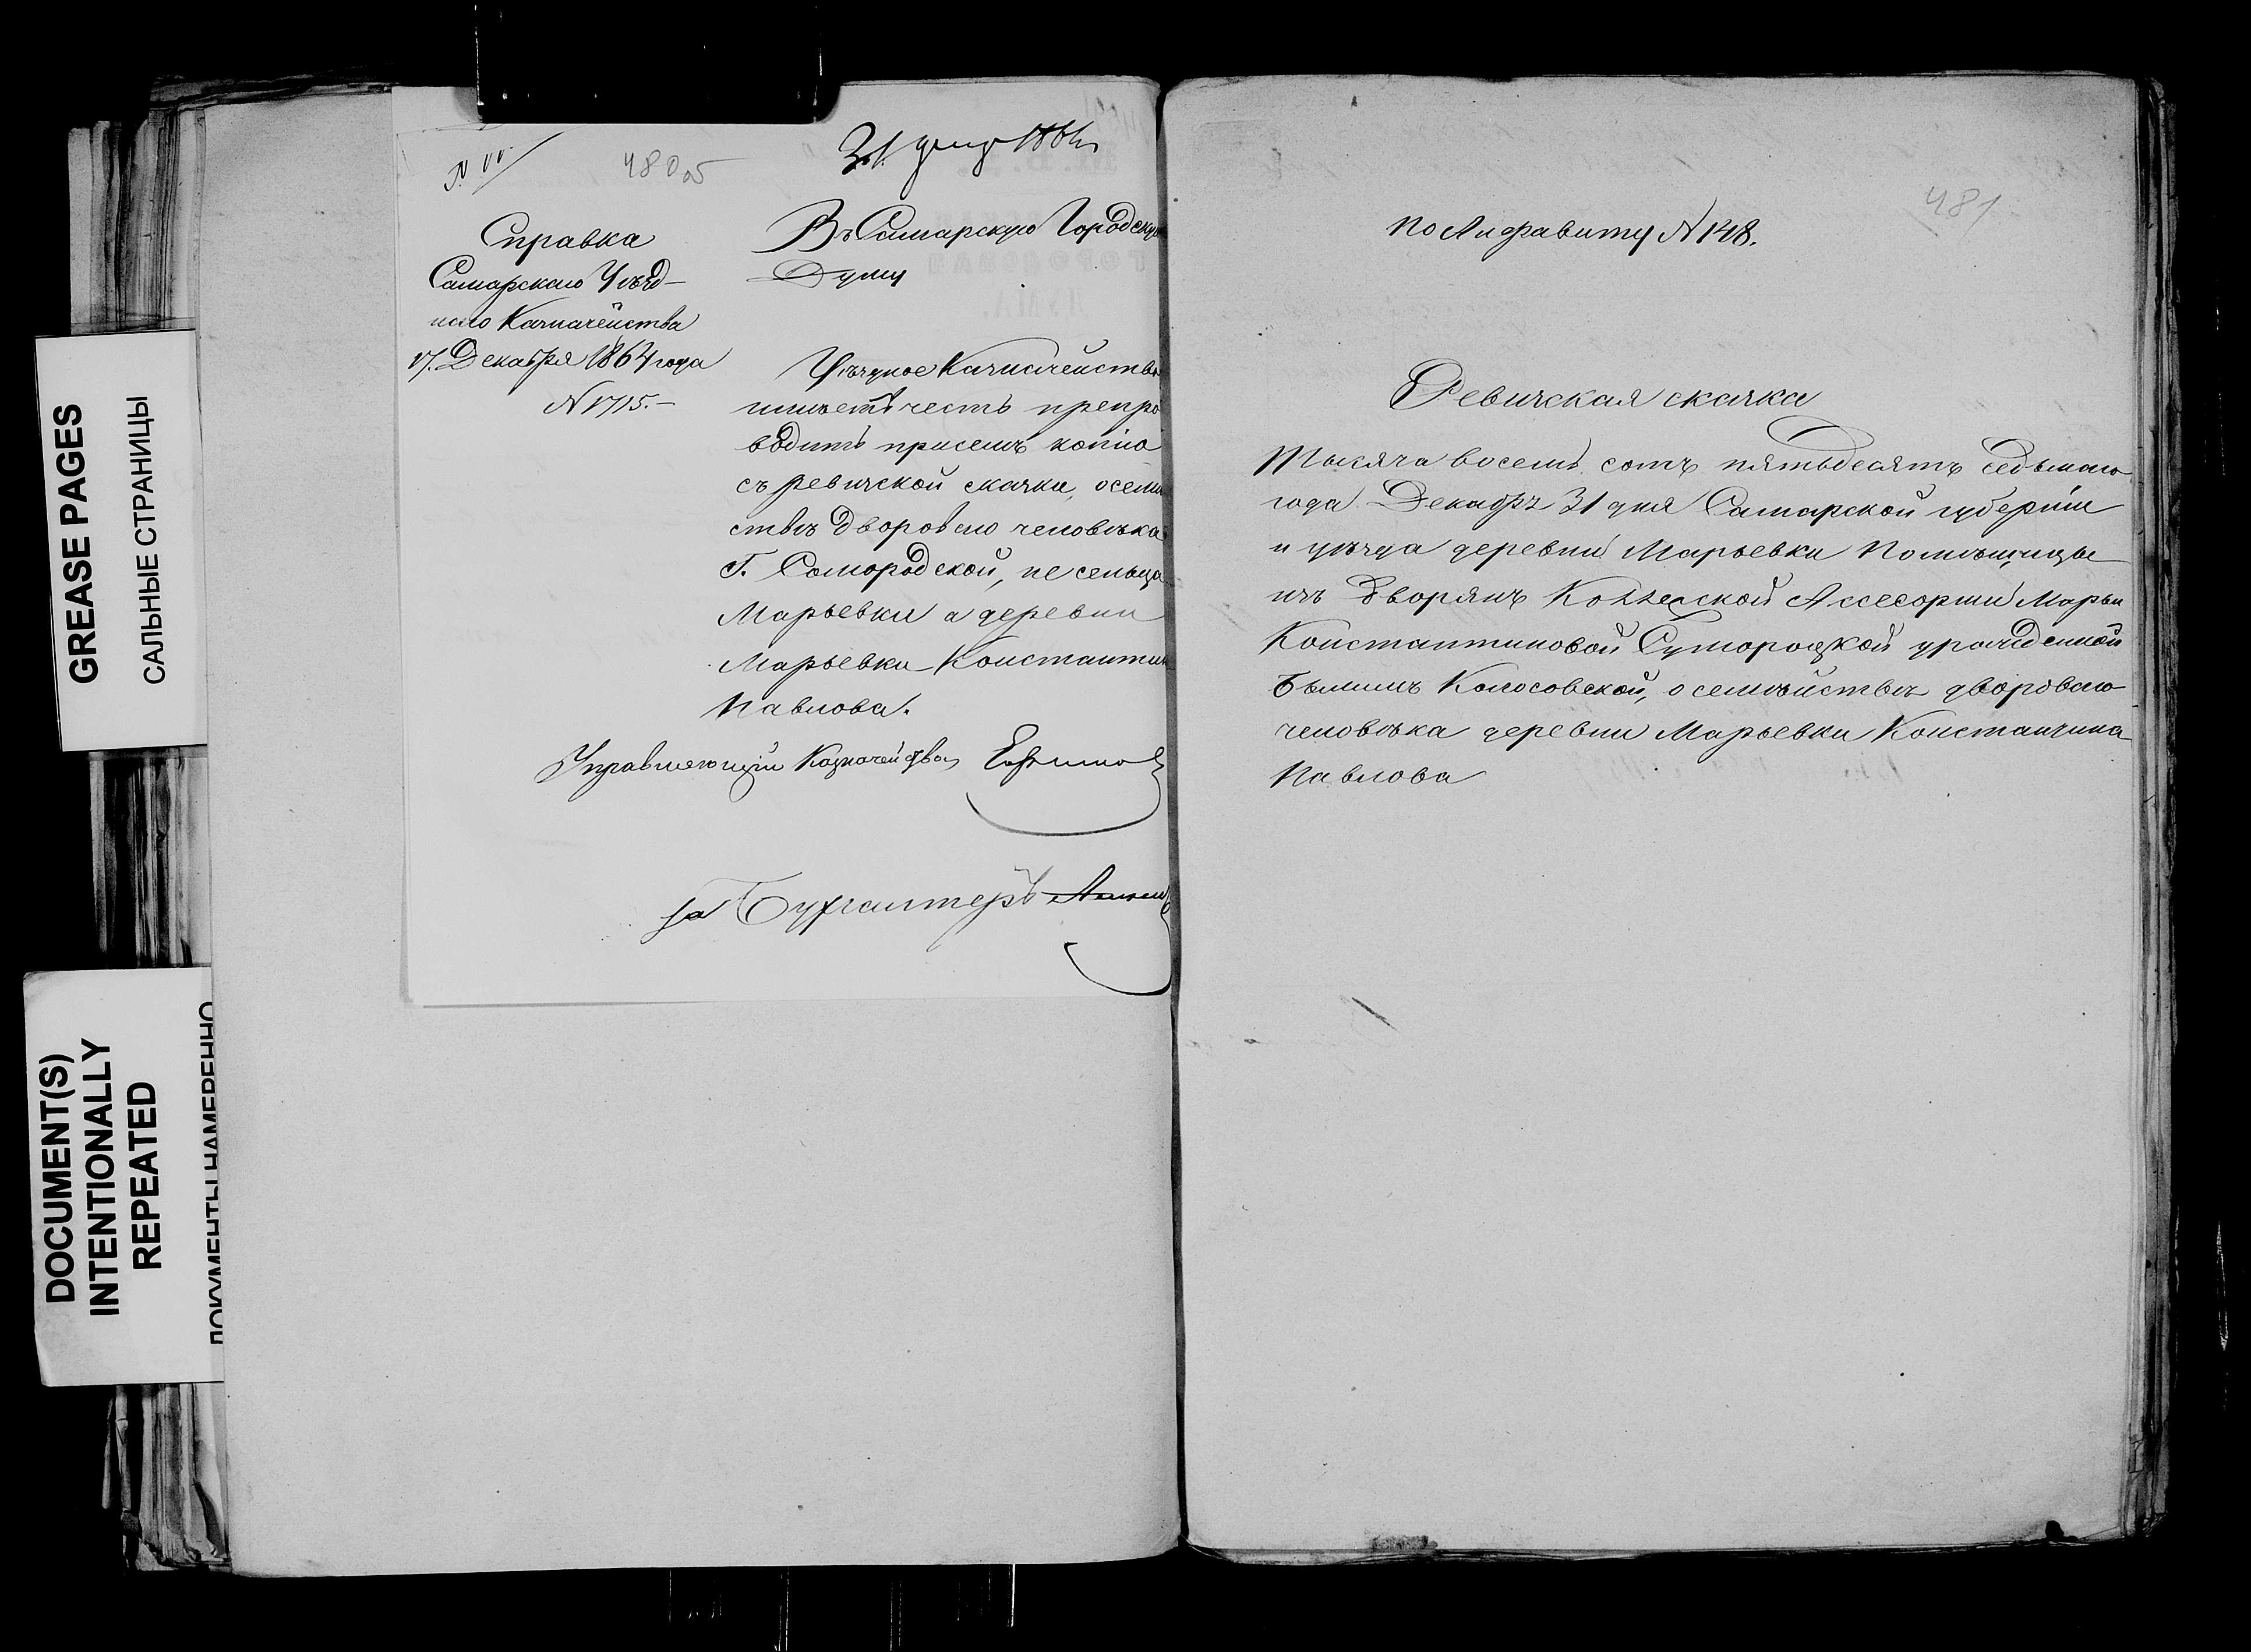 GREASE PAGES
САЛЬНЫЕ СТРАНИЦЫ
DOCUMENT(S)
INTENTIONALLY
REPEATED
ДОКУМЕНТЫ НАМЕРЕННО
480об
31 дек 1864
Справка
Самарскаго Уѣзд-
наго Казначейства
17. Декабря 1864 года
N 1715.-
Въ Самарскую Городскую
Думу
Уѣздное Казначейство
имѣетъ честь препро
водить присемъ копію
съ ревизской сказки, осемѣ
ствѣ двороваго человѣка
Г. Сомородской, не сельца
Марьевки а деревни
Марьевки Константина
Павлова.
Управляющій Казначействомъ Ефимов
за Бухгалтеръ
481
по Алфавиту N 148.
Ревизская сказка
Тысяча восемь сотъ пятьдесятъ седьмаго
года Декабрь 31 дня Самарской губерніи
и уѣзда деревни Марьевки Помѣщицы
изъ Дворянъ Коллежской Ассесорши Марьи
Константиновой Сумороцкой урожденной
бывшимъ Колосовской, о семѣйствѣ двороваго
человѣка деревни Марьевки Константина
Павлова